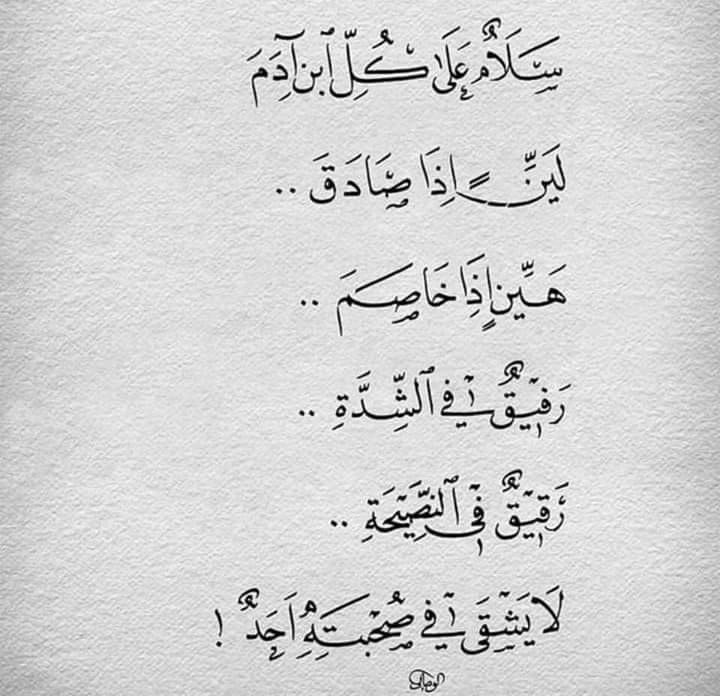 سَلَامٌ عَلَىٰ كُلِّ ٱبن آدِمَ
لَيِّنٍ إِذَا صَادَقَ ..
هَيِّنٍ إِذَا خَاصِمَ ..
رَفِيقٌ فِي ٱلشِّدَّةِ ..
رَقِيقٌ فِي ٱلنَّصِيحَةِ ..
لَا يَشْقَىٰ فِي صُحْبَتِهِ أَحَدٌ !